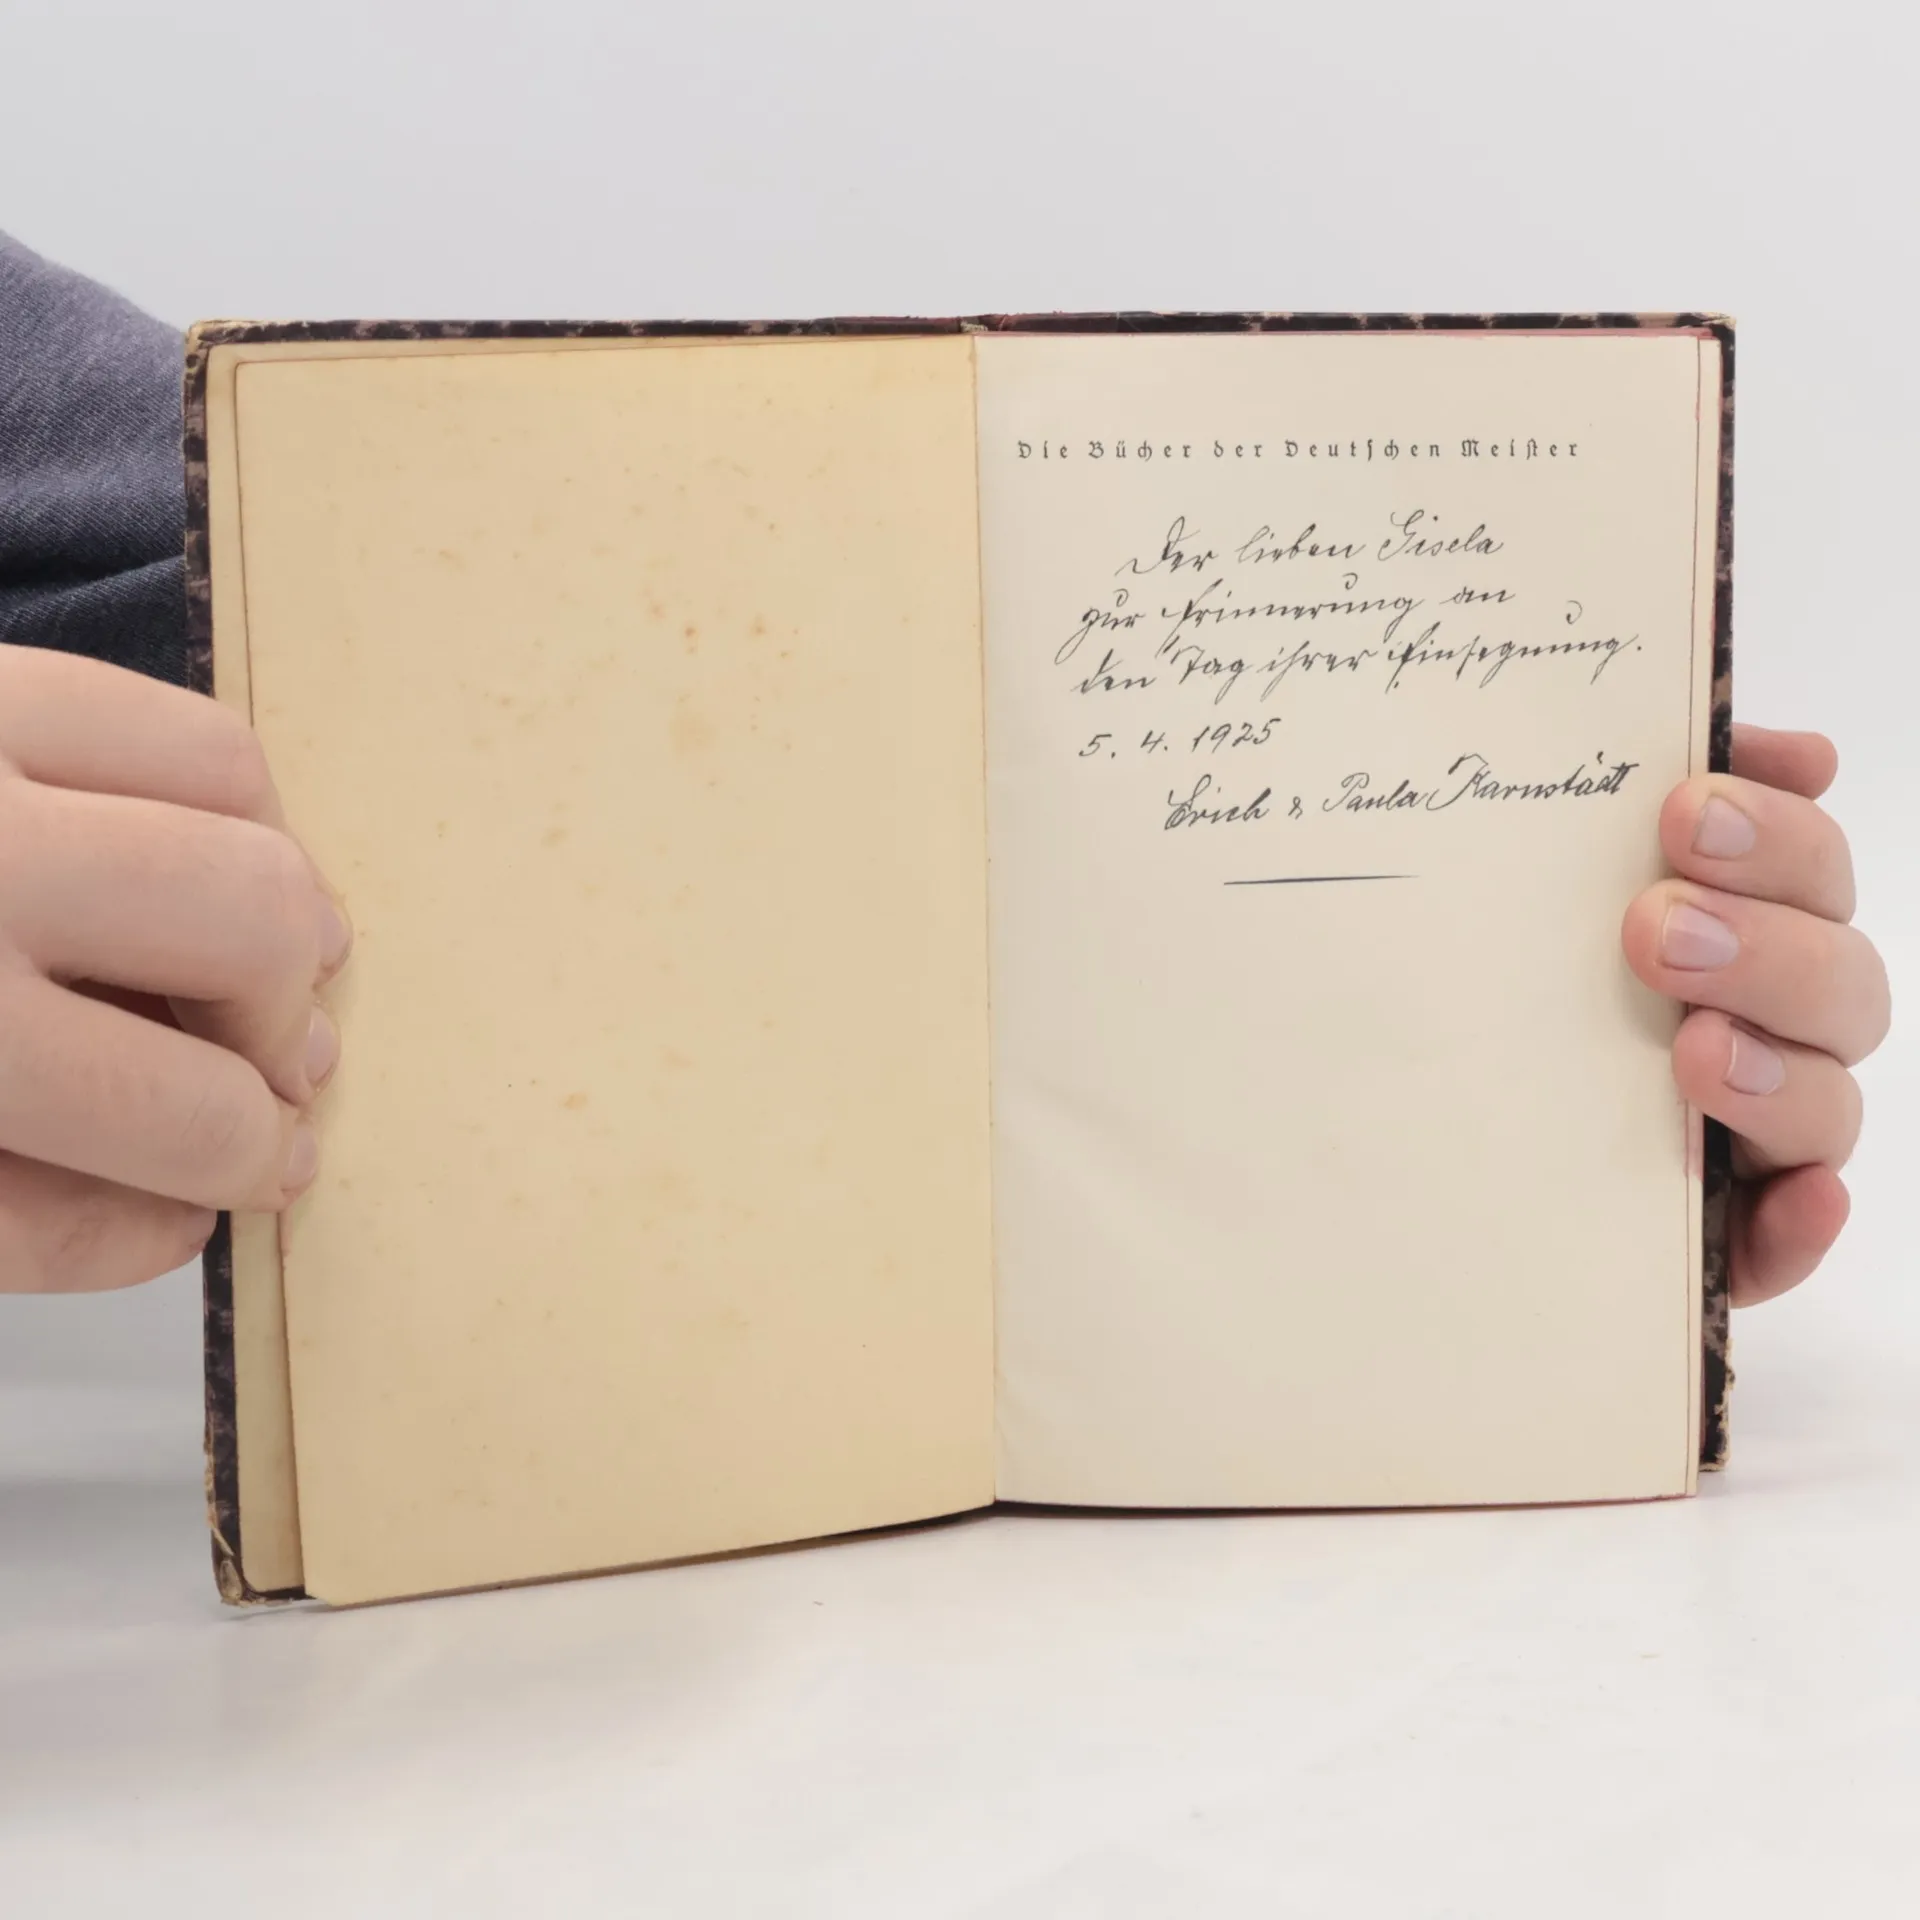 Die Bücher der Deutschen Meister
Der lieben Gisela
zur Erinnerung an
den Tag ihrer Einsegnung.
5. 4. 1925
Erich & Paula Karnstädt